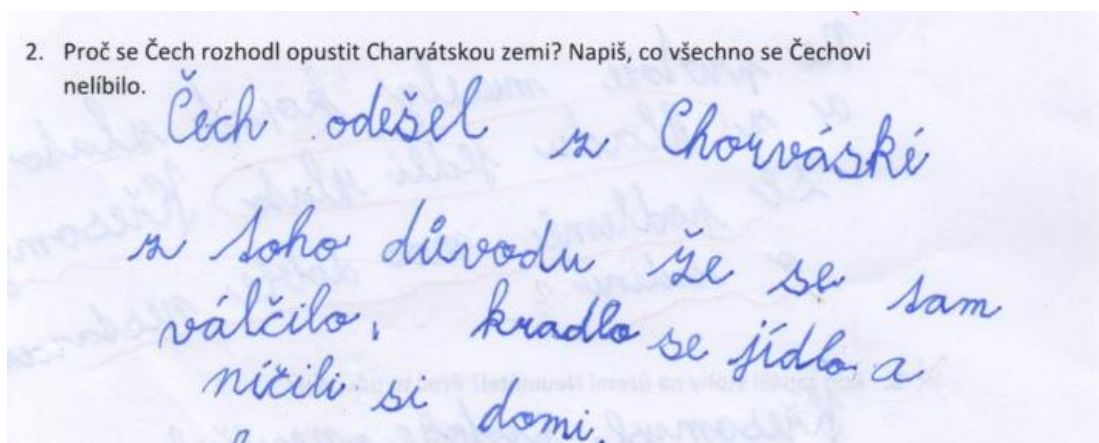 2. Proč se Čech rozhodl opustit Charvátskou zemi? Napiš, co všechno se Čechovi
nelíbilo.
Čech odešel z Chorváské
z toho důvodu že se tam
válčilo, kradlo se jídlo a
ničili si domi.